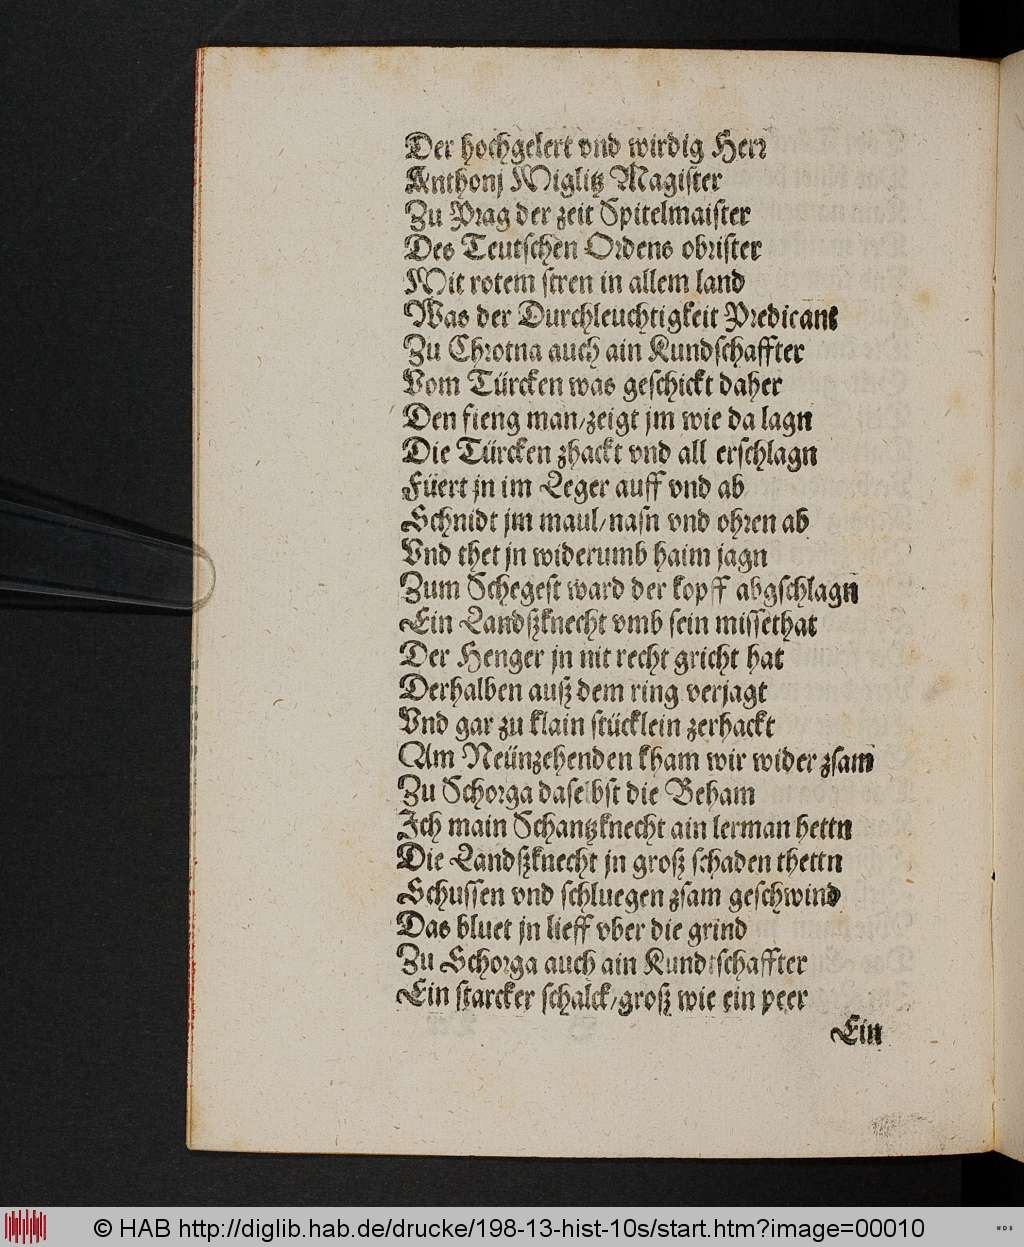 Der hochgelert vnd wirdig Herr
Anthonj Miglitz Magister
Zu Prag der zeit Spitelmaister
Des Teutschen Ordens obrister
Mit rotem stren in allem land
Was der Durchleuchtigkeit Predicant
Zu Chrotna auch ain Kundschaffter
Vom Türcken was geschickt daher
Den fieng man/zeigt jm wie da lagn
Die Türcken zhackt vnd all erschlagn
Füert jn im Leger auff vnd ab
Schnidt jm maul/nasn vnd ohren ab
Vnd thet jn widerumb haim jagn
Zum Schegest ward der kopff abgschlagn
Ein Landßknecht vmb sein missethat
Der Henger jn nit recht gricht hat
Derhalben auß dem ring verjagt
Vnd gar zu klain stücklein zerhackt
Am Neünzehenden kham wir wider zsam
Zu Schorga daselbst die Beham
Ich main Schantzknecht ain lerman hettn
Die Landßknecht jn groß schaden thettn
Schussen vnd schluegen zsam geschwind
Das bluet jn lieff vber die grind
Zu Schorga auch ain Kundtschaffter
Ein starcker schalck/groß wie ein peer
Ein
© HAB http://diglib.hab.de/drucke/198-13-hist-10s/start.htm?image=00010